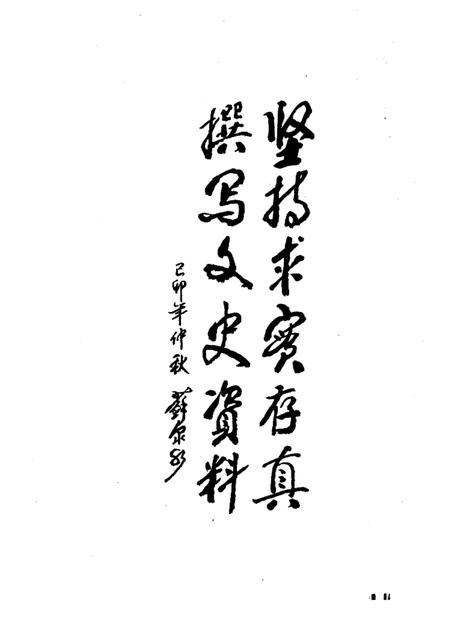 坚持求实存真
撰写文史資料
己卯年仲秋 薛泉